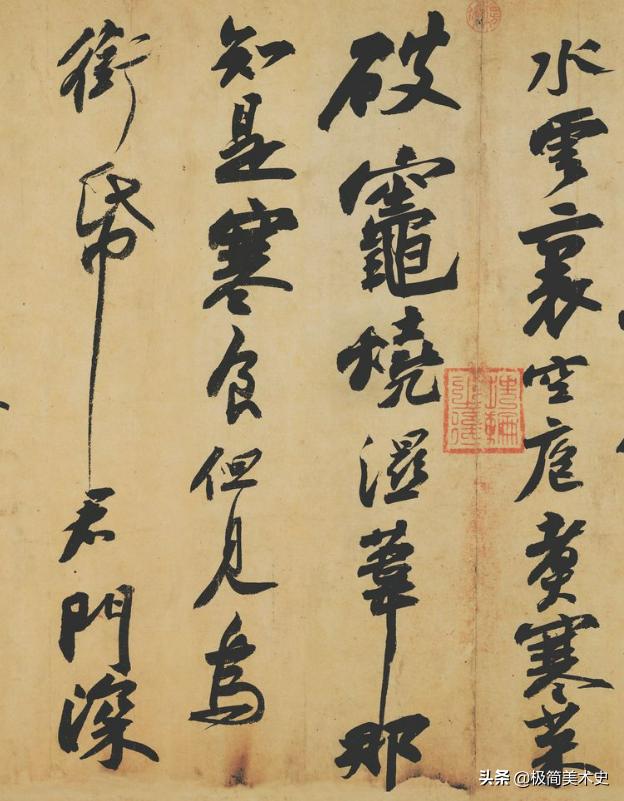 水雲裏空庖煮寒菜
破竈燒濕葦那
知是寒食但見烏
銜帋君門深
埋輪之後
头条 @极简美术史